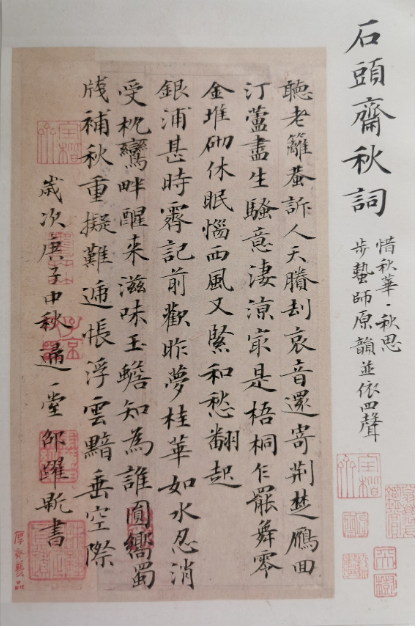 石頭齋秋詞
惜秋華·秋思
步蟄師原韻並依四聲
聽老籬蛩訴人天賸刦哀音還寄荆楚鴈回
汀蘆盡生騷意淒涼寂是梧桐乍罷舞零
金堆砌休眠惱西風又緊和愁翻起
銀浦甚時霽記前歡昨夢桂華如水忍消
受枕鸞畔醒來滋味玉蟾知為誰圓繻蜀
牋補秋重擬難遞悵浮雲黯垂空際
歲次庚子中秋遁堂邵躍書